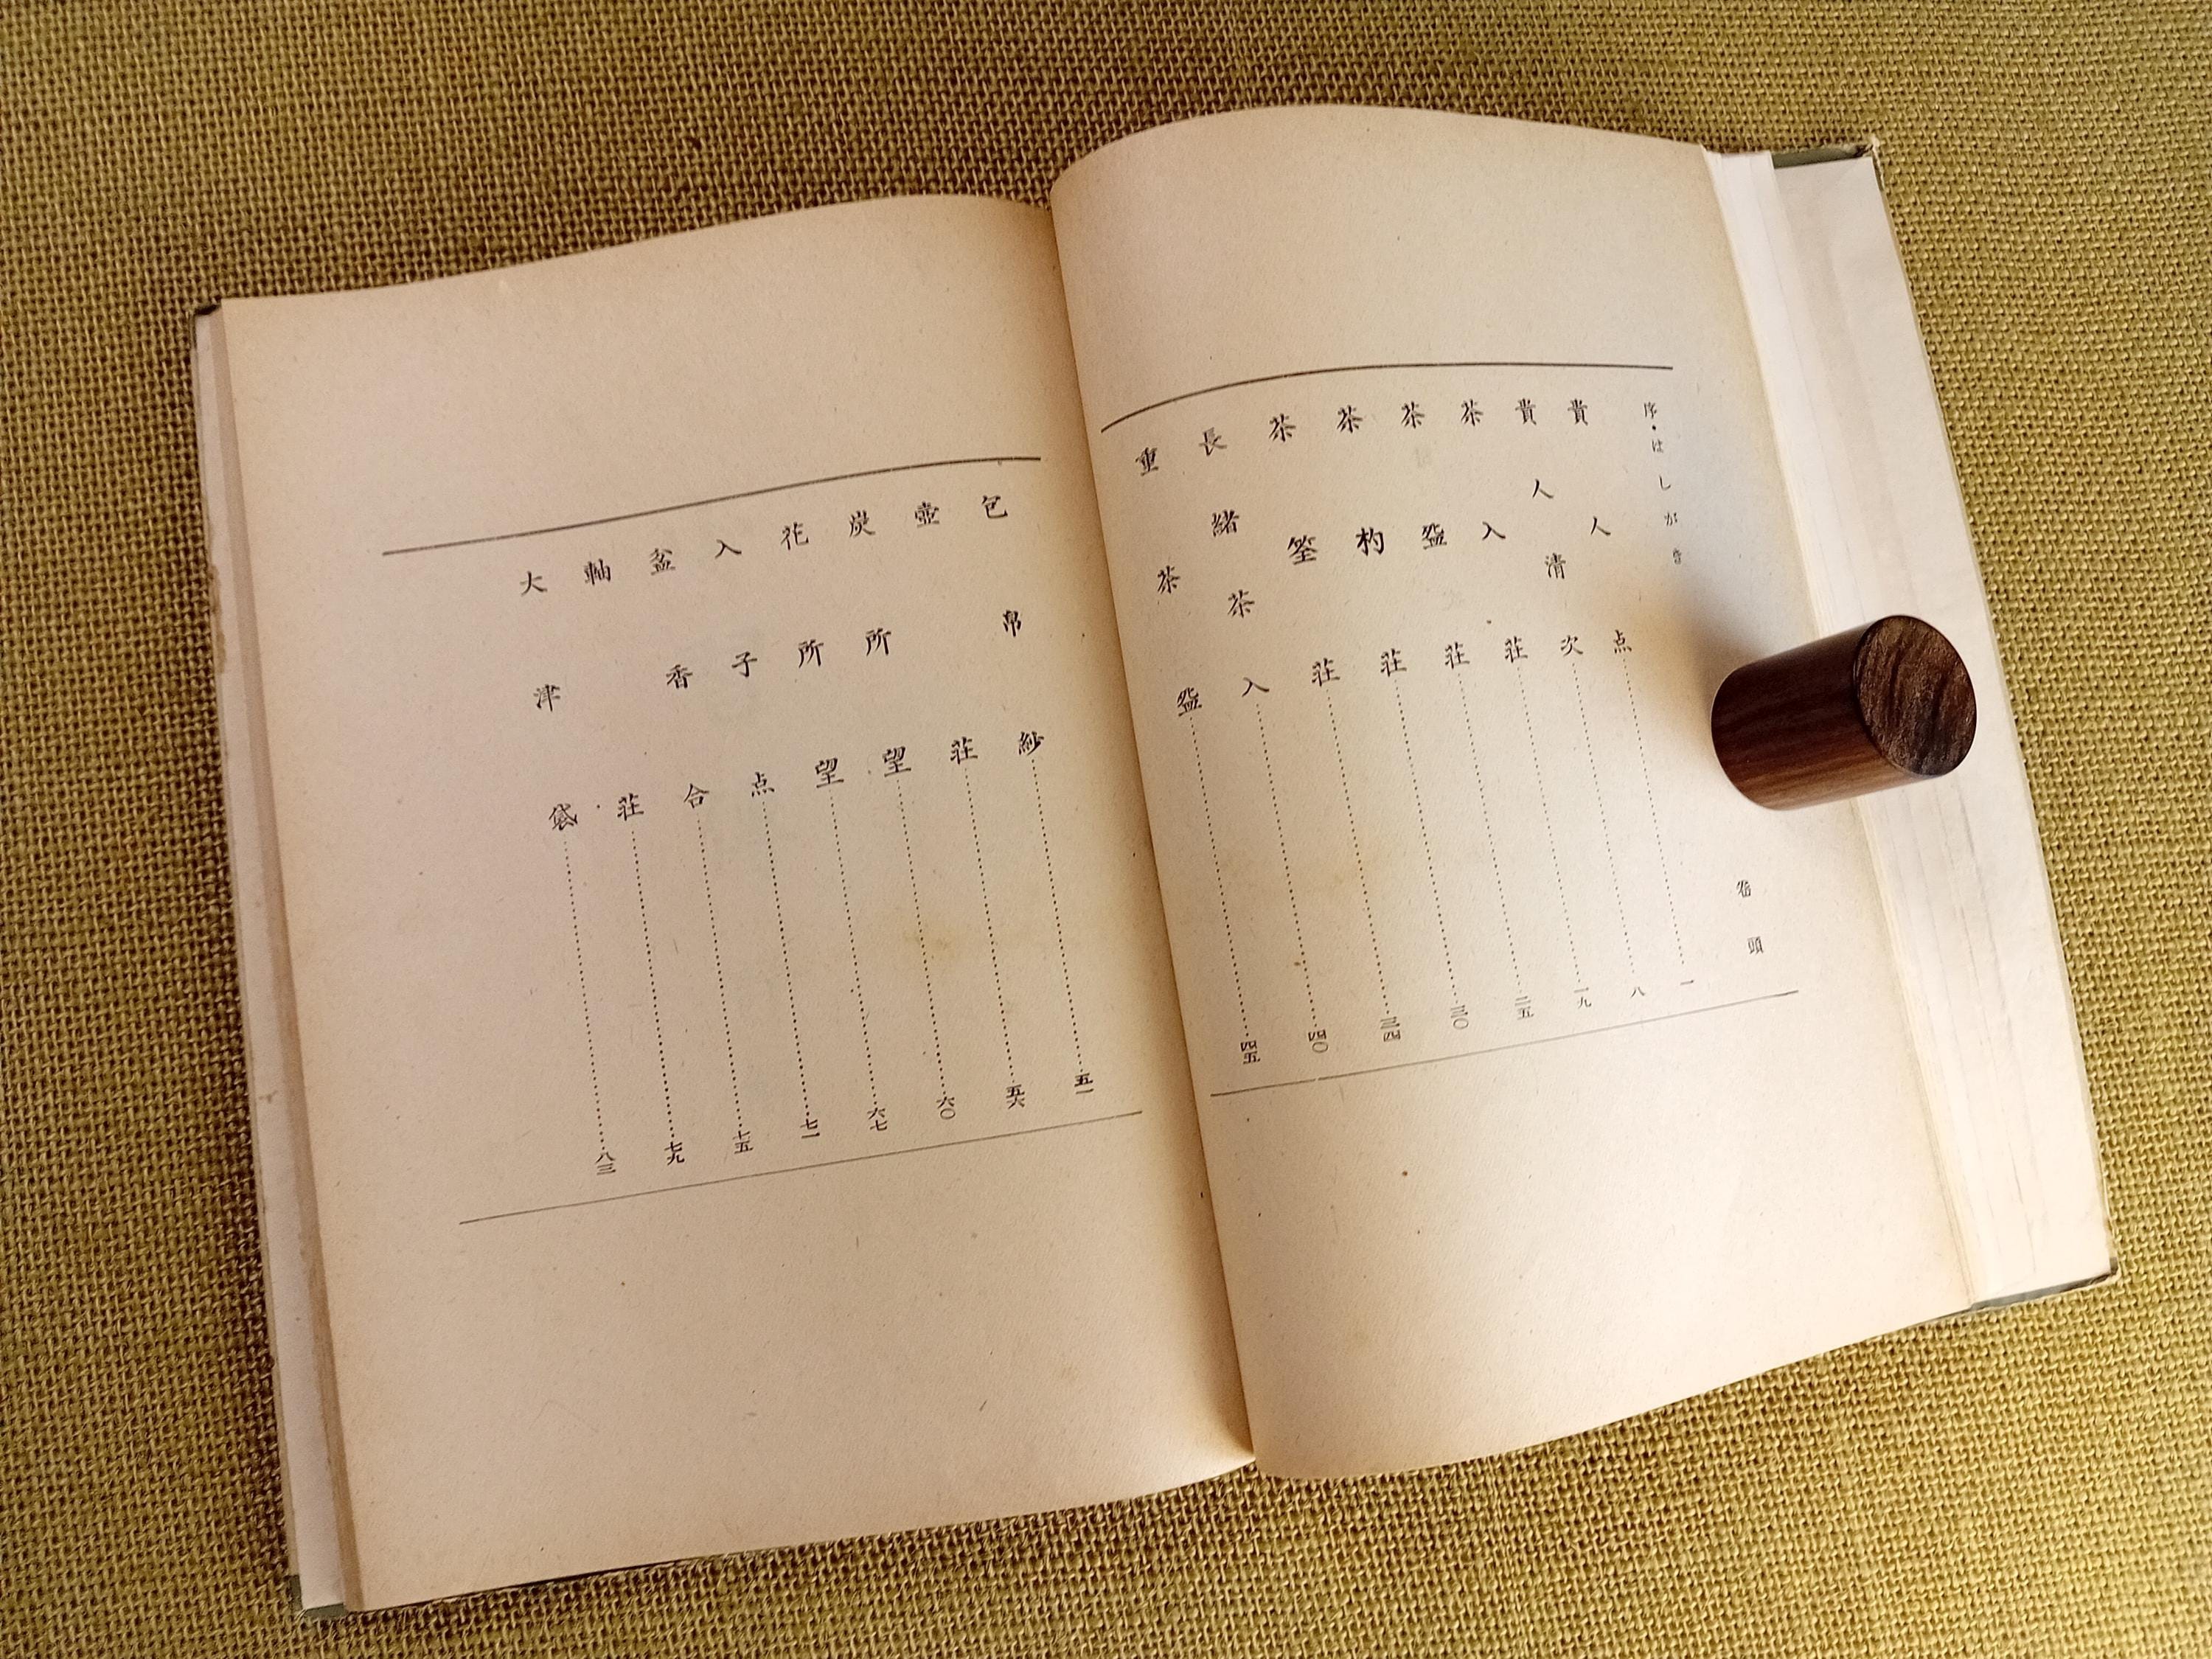 序・はしがき 巻頭
貴人点……一
貴人清次……八
茶入荘……一九
茶盌荘……二五
茶杓荘……三〇
茶筌荘……三四
長緒茶入……四〇
重茶盌……四五
包帛紗……五一
壺荘……五六
炭所望……六〇
花所望……六七
入子点……七一
盆香合……七五
軸荘……七九
大津袋……八三